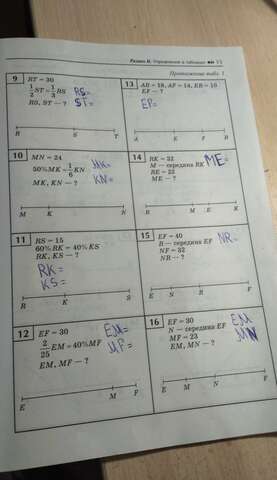 Раздел II. Упражнения в таблицах 15
Продолжение табл. 1
9
RT = 30
1/2 ST = 1/3 RS
RS, ST — ?
RS=
ST=
R S T
13
AB = 18, AF = 14, EB = 10
EF — ?
EF=
A E F B
10
MN = 24
50% MK = 1/6 KN
MK, KN — ?
MK=
KN=
M K N
14
RK = 32
M — середина RK
RE = 22
ME — ?
ME=
R M E K
11
RS = 15
60% RK = 40% KS
RK, KS — ?
RK=
KS=
R K S
15
EF = 40
R — середина EF
NF = 32
NR — ?
NR=
E N R F
12
EF = 30
2/25 EM = 40% MF
EM, MF — ?
EM=
MF=
E M F
16
EF = 30
N — середина EF
MF = 23
EM, MN — ?
EM
MN
E M N F